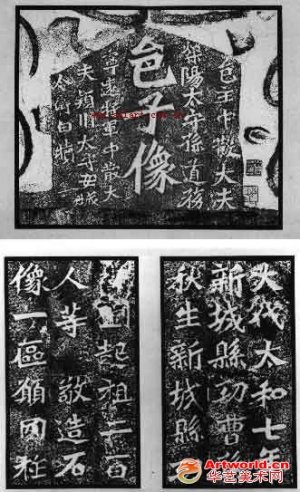 邑子像
邑主中散大夫
滎陽太守孫道務
寧遠將軍中散大
夫穎川太守安城
令衛白犢
大代太和七年
新城縣功曹孫
秋生新城縣
劉起祖二百
人等敬造石
像一區願國祚
Artworld.cn
华艺美术网